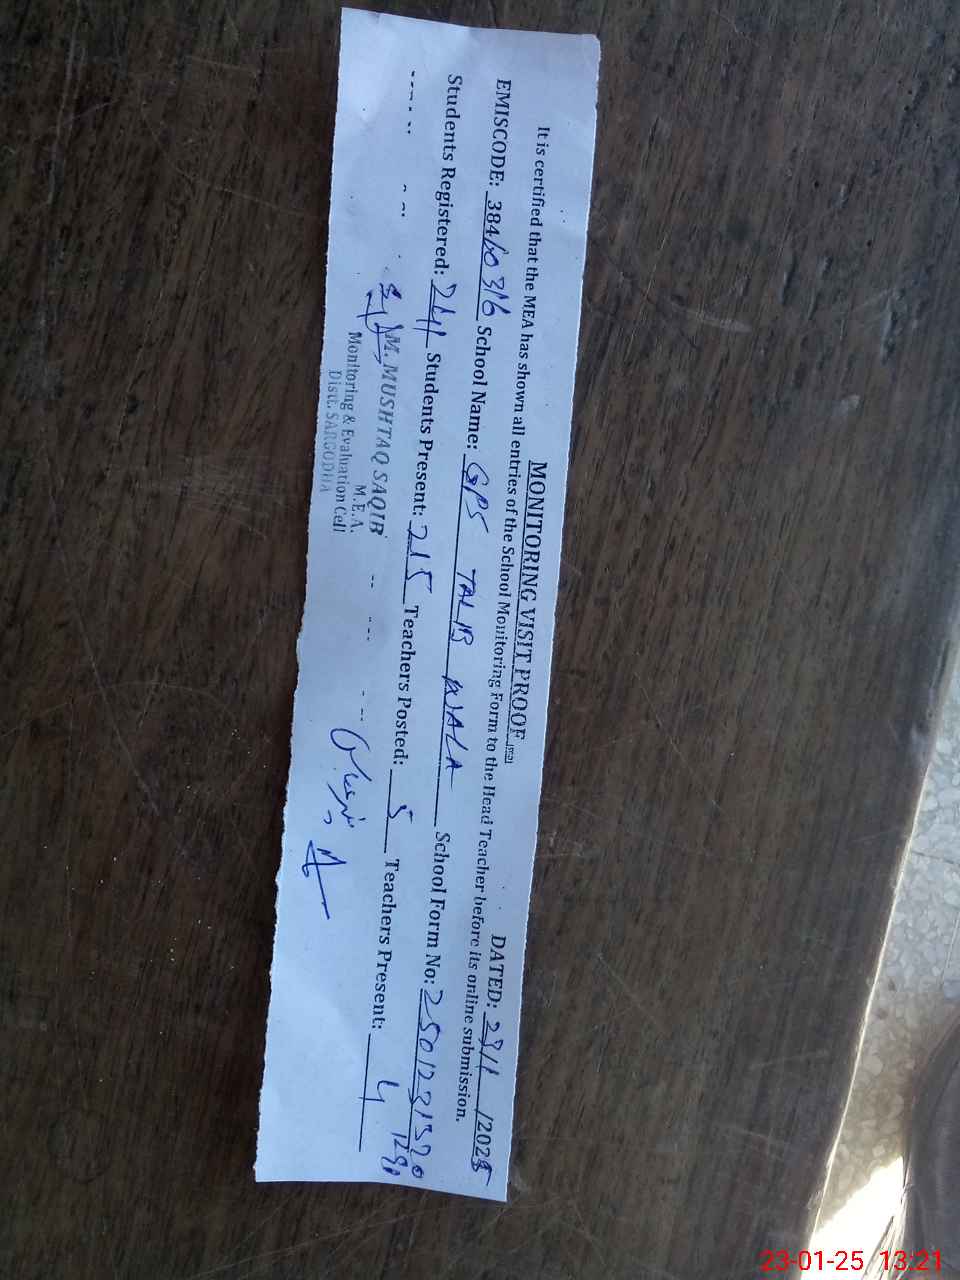 MONITORING VISIT PROOF
DATED: 23/1/2025
It is certified that the MEA has shown all entries of the School Monitoring Form to the Head Teacher before its online submission.
EMISCODE: 38410316 School Name: GPS TALIB WALA School Form No: 2501231320
Students Registered: 241 Students Present: 215 Teachers Posted: 5 Teachers Present: 4
M. MUSHTAQ SAQIB
M.E.A.
Monitoring & Evaluation Cell
Distt. SARGODHA
23-01-25 13:21